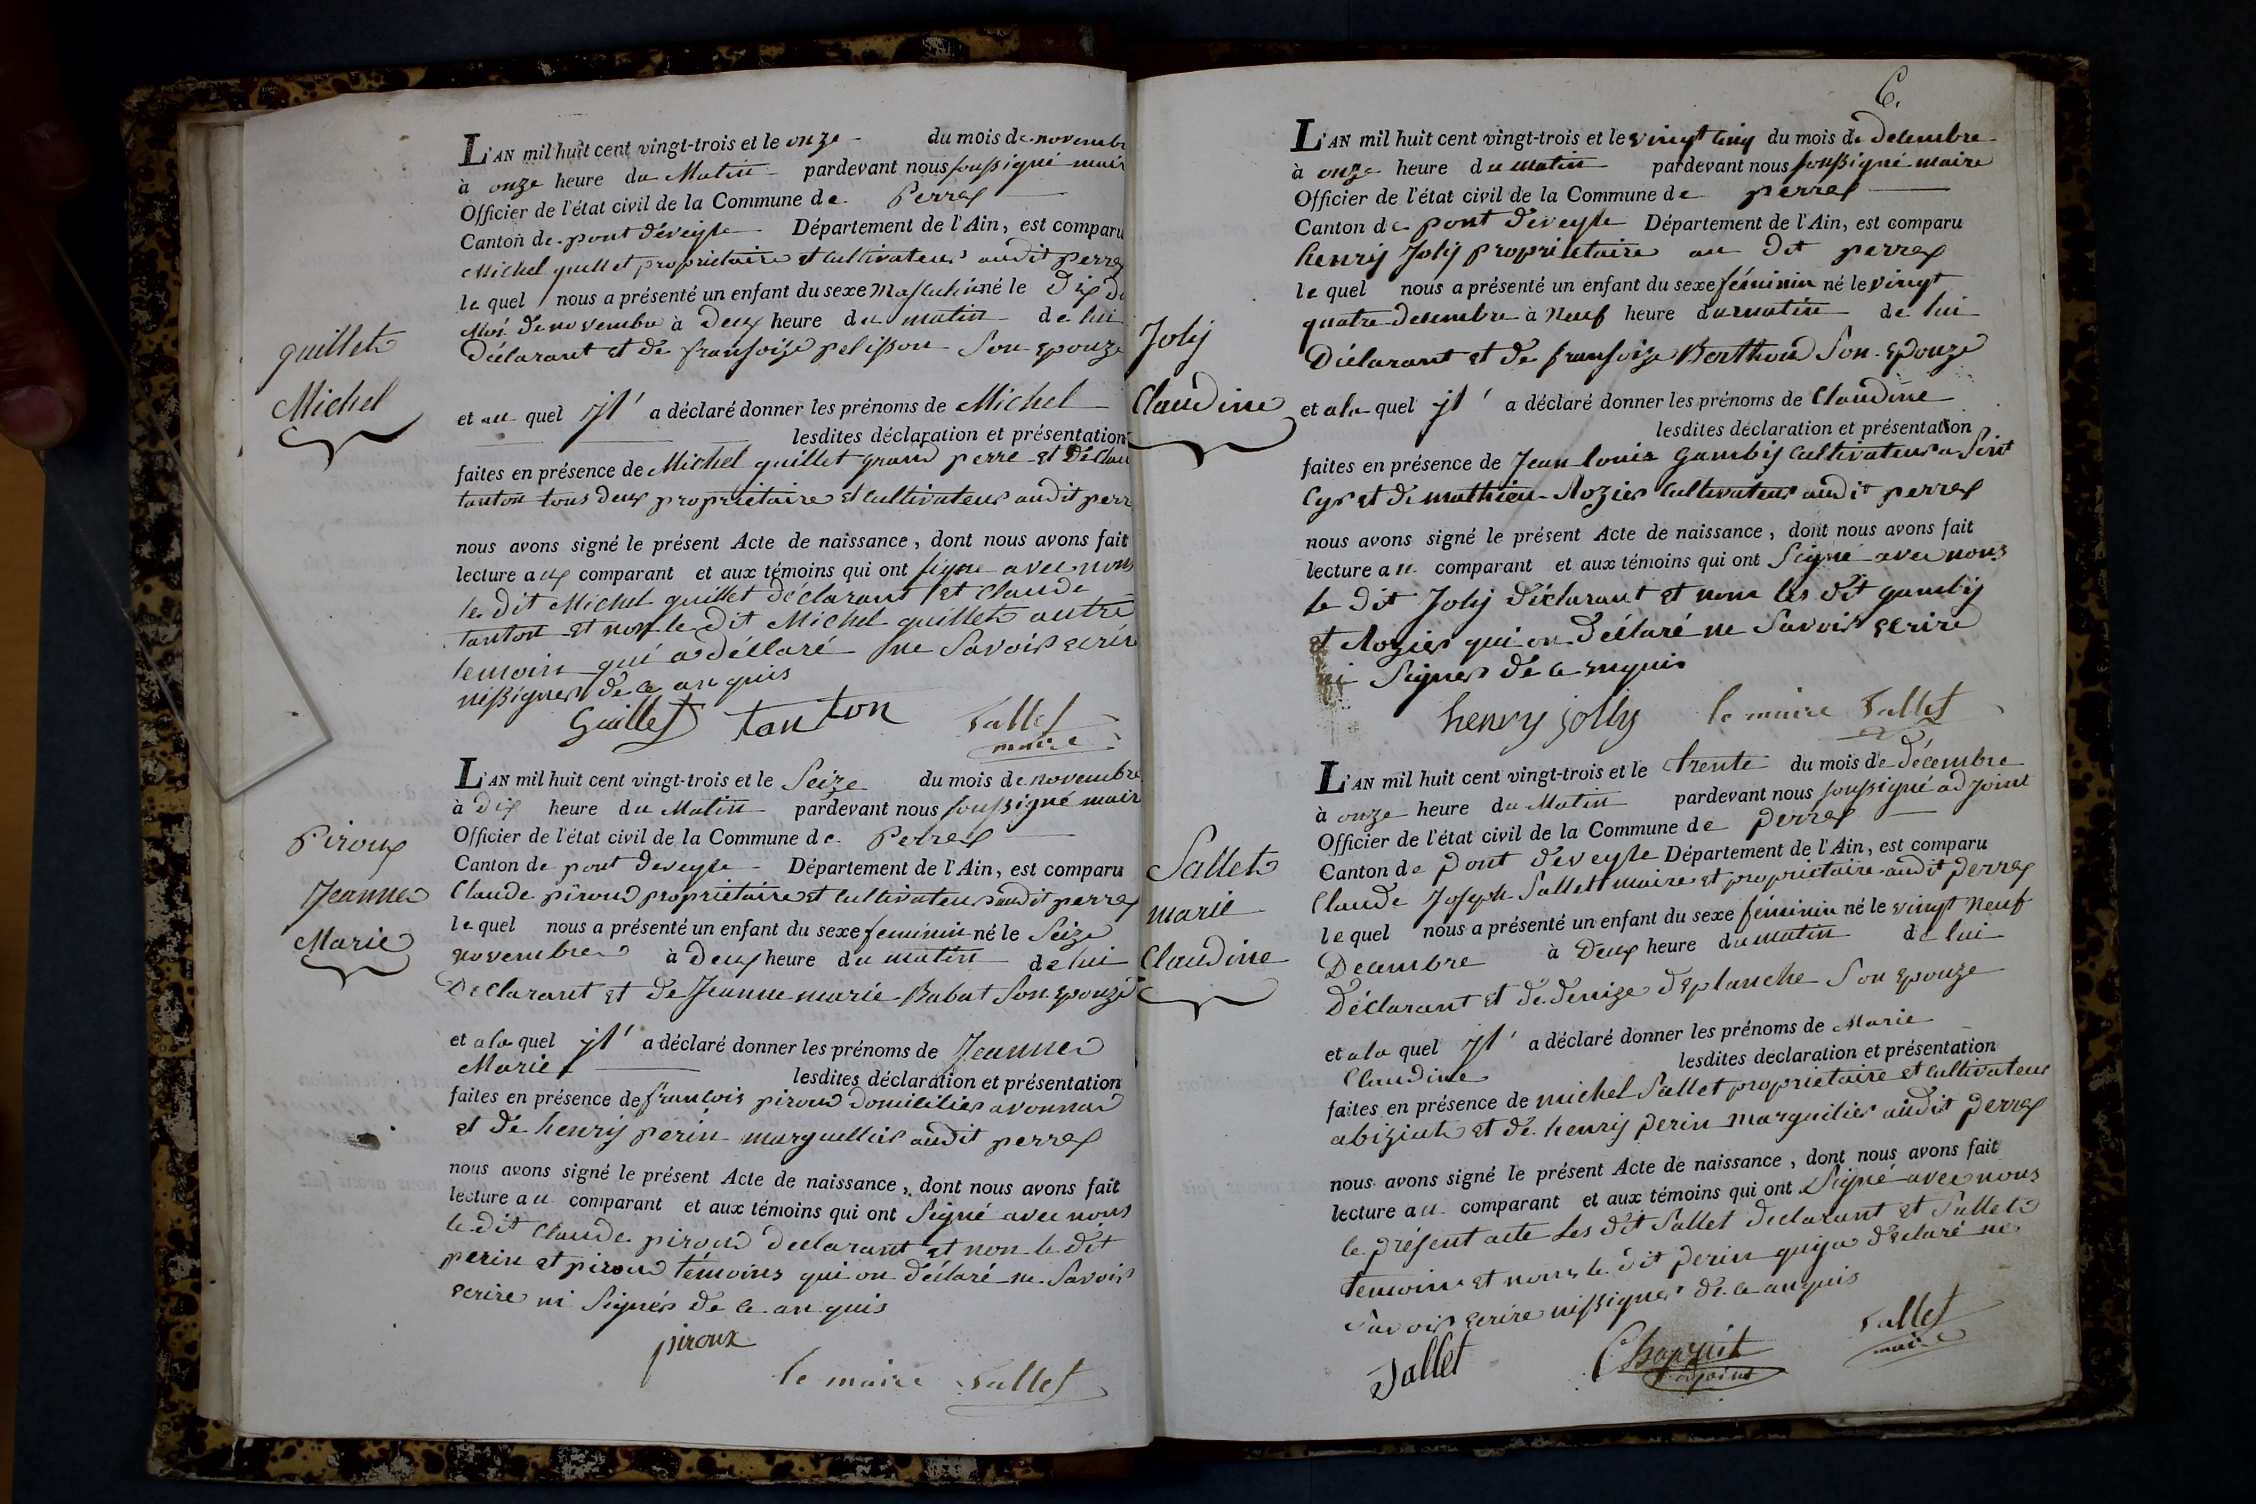 guillet
Michel
L'AN mil huit cent vingt-trois et le onze du mois de novembr
à onze heure du Matin pardevant nous soussigné mair
Officier de l'état civil de la Commune de Perrex
Canton de pont deveyle Département de l'Ain, est comparu
Michel guillet proprietaire et cultivateur audit perrex
le quel nous a présenté un enfant du sexe Masculin né le Dix du
Moi de novembre à deux heure du matin de lui
Déclarant et de fransoize pelisson Son epouze
et au quel jl a déclaré donner les prénoms de Michel
lesdites déclaration et présentation
faites en présence de Michel guillet grand perre et de Clau
tanton tous deux proprietaire et cultivateur audit perr
nous avons signé le présent Acte de naissance, dont nous avons fait
lecture aux comparant et aux témoins qui ont signe avec nous
le dit Michel guillet déclarant et Claude
tanton et non le dit Michel guillet autre
temoin qui a déclaré ne Savoir ecrire
nissigner de ce anquis
Guillet tanton Sallet
maire
Piroux
Jeanne
Marie
L'AN mil huit cent vingt-trois et le Seize du mois de novembre
à dix heure du Matin pardevant nous soussigné mair
Officier de l'état civil de la Commune de Perrex
Canton de pont deveyle Département de l'Ain, est comparu
Claude piroud proprietaire et cultivateur audit perrex
le quel nous a présenté un enfant du sexe feminin né le Seize
novembre à deux heure du matin de lui
Declarant et de Jeanne marie Babat Son epouze
et a la quel jl a déclaré donner les prénoms de Jeanne
Marie lesdites déclaration et présentation
faites en présence de francois piroud domicilier a vonnas
et de henrij perin marguellier audit perrex
nous avons signé le présent Acte de naissance, dont nous avons fait
lecture au comparant et aux témoins qui ont Signé avec nous
le dit Claude piroud declarant et non le dit
perin et piroud témoins qui on déclaré ne Savoir
ecrire ni Signer de ce anquis
piroux
le maire Sallet
6.
Jolij
Claudine
L'AN mil huit cent vingt-trois et le vingt cinq du mois de decembre
à onze heure du matin pardevant nous soussigné maire
Officier de l'état civil de la Commune de perrex
Canton de pont deveyle Département de l'Ain, est comparu
henrij Jolij proprietaire au dit perrex
le quel nous a présenté un enfant du sexe féminin né le vingt
quatre decembre à neuf heure du matin de lui
Déclarant et de fransoize Berthoud Son epouze
et a la quel jl a déclaré donner les prénoms de Claudine
lesdites déclaration et présentation
faites en présence de Jean louis gambij cultivateur a Sint
Cyr et de mathieu Rozier cultivateur audit perrex
nous avons signé le présent Acte de naissance, dont nous avons fait
lecture au comparant et aux témoins qui ont Signé avec nous
le dit Jolij déclarant et nom les dit gambij
et Rozier qui on déclaré ne Savoir ecrire
ni Signer de ce enquis
henry jolly le maire Sallet
Sallet
marie
Claudine
L'AN mil huit cent vingt-trois et le trente du mois de décembre
à onze heure du Matin pardevant nous soussigné adjoint
Officier de l'état civil de la Commune de perrex
Canton de pont deveyle Département de l'Ain, est comparu
Claude Joseph Sallet maire et proprietaire audit perrex
le quel nous a présenté un enfant du sexe féminin né le vingt neuf
Decembre à deux heure du matin de lui
Déclarant et de denize deplanche Son epouze
et a la quel jl a déclaré donner les prénoms de Marie
Claudine lesdites declaration et présentation
faites en présence de michel Sallet proprietaire et cultivateur
abiziat et de henrij perin marguilier audit perrex
nous avons signé le présent Acte de naissance, dont nous avons fait
lecture au comparant et aux témoins qui ont Signé avec nous
le présent acte les dit Sallet declarant et Sallet
temoin et nom le dit perin qui a déclaré ne
Savoir ecrire nissigner de ce anquis
Sallet Chapuit Sallet
adjoint maire